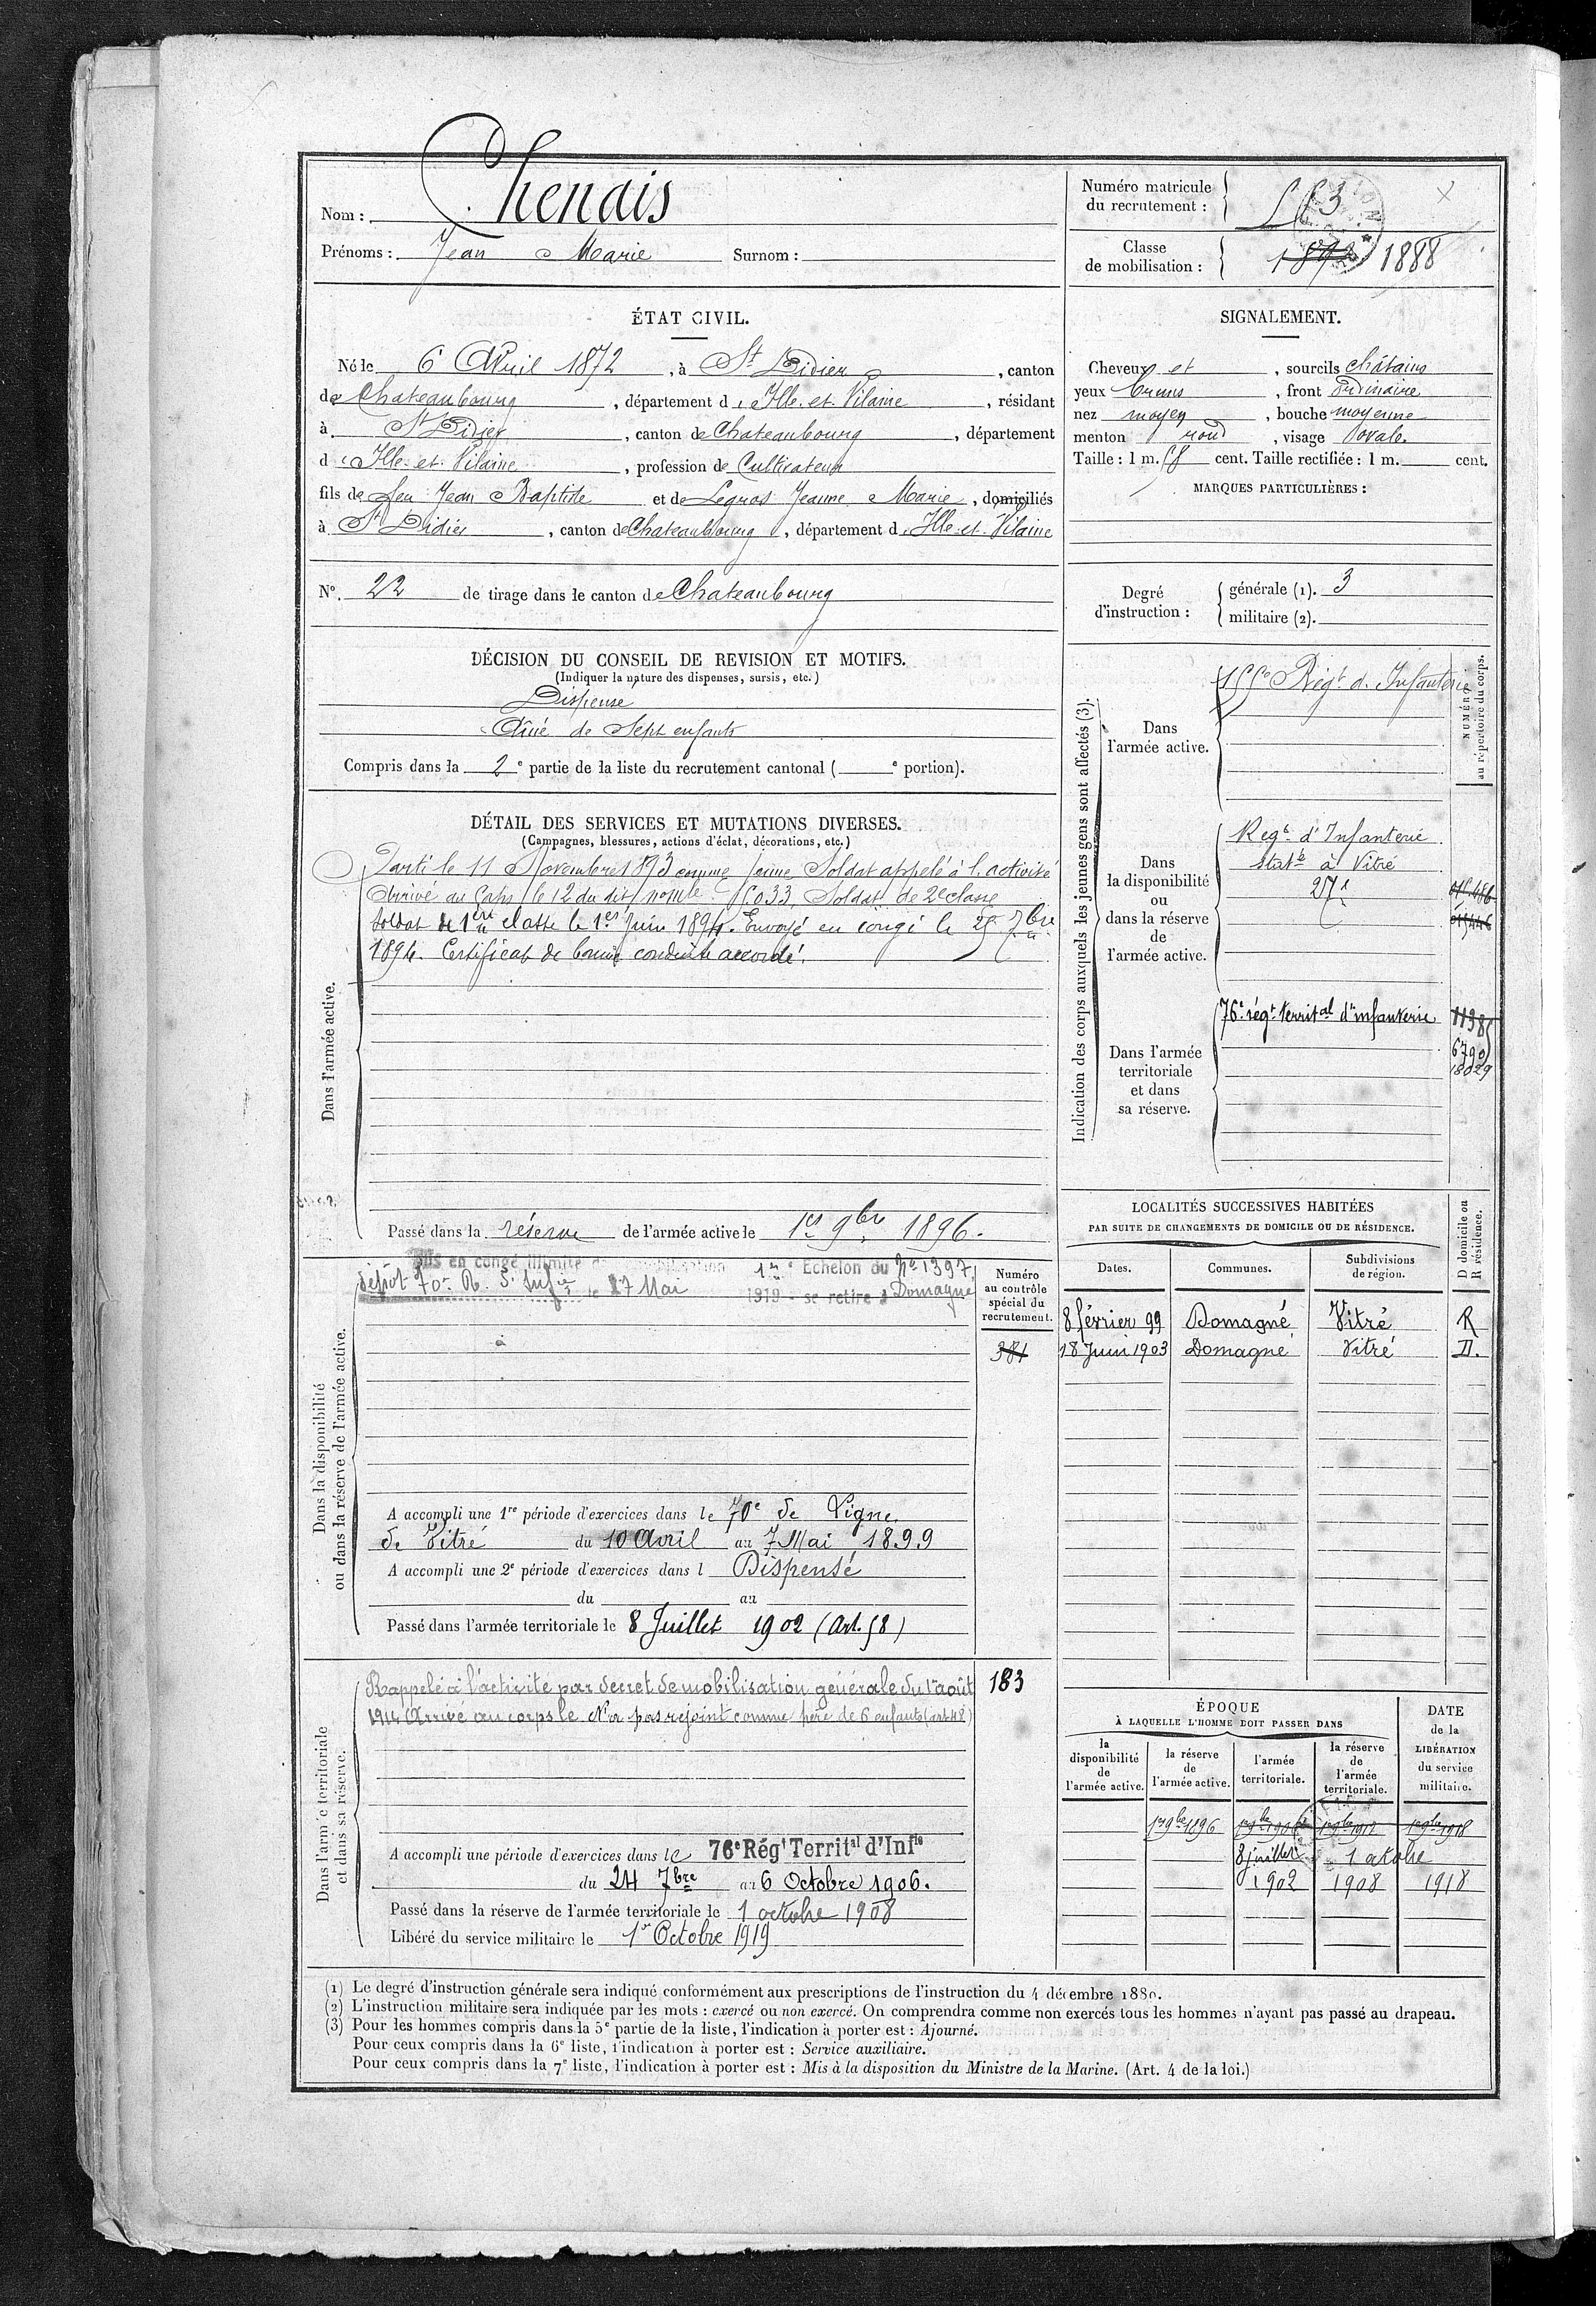 Nom : Chenais
Prénoms : Jean Marie Surnom :
Numéro matricule
du recrutement : 553
Classe
de mobilisation : 1892 1888
ÉTAT CIVIL.
Né le 6 Avril 1872, à St Didier, canton
de Chateaubourg, département d'Ille-et-Vilaine, résidant
à St Didier, canton de Chateaubourg, département
d'Ille-et-Vilaine, profession de Cultivateur
fils de feu Jean Baptiste et de Legros Jeanne Marie, domiciliés
à St Didier, canton de Chateaubourg, département d'Ille-et-Vilaine
N° 22 de tirage dans le canton de Chateaubourg
SIGNALEMENT.
Cheveux et, sourcils châtains
yeux bruns, front ordinaire
nez moyen, bouche moyenne
menton rond, visage ovale.
Taille : 1 m. 58 cent. Taille rectifiée : 1 m. cent.
MARQUES PARTICULIÈRES :
Degré
d'instruction :
générale (1). 3
militaire (2).
DÉCISION DU CONSEIL DE REVISION ET MOTIFS.
(Indiquer la nature des dispenses, sursis, etc.)
Dispensé
Aîné de Sept enfants
Compris dans la 2e partie de la liste du recrutement cantonal ( e portion).
DÉTAIL DES SERVICES ET MUTATIONS DIVERSES.
(Campagnes, blessures, actions d'éclat, décorations, etc.)
Dans l'armée active.
Parti le 11 Novembre 1893 comme Jeune Soldat appelé à l'activité
Arrivé au Corps le 12 du dit, no mle 5033, Soldat de 2e classe
Soldat de 1ere classe le 1er Juin 1894. Envoyé en congé le 25 7bre
1894. Certificat de bonne conduite accordé.
Passé dans la réserve de l'armée active le 1er 9bre 1896.
Indication des corps auxquels les jeunes gens sont affectés (3).
NUMÉRO
au répertoire du corps.
Dans
l'armée active.
155e Régt d'Infanterie
Dans
la disponibilité
ou
dans la réserve
de
l'armée active.
Regt d'Infanterie
statné à Vitré
271
Dans l'armée
territoriale
et dans
sa réserve.
76e régt territal d'infanterie
11385
6790
18029
LOCALITÉS SUCCESSIVES HABITÉES
PAR SUITE DE CHANGEMENTS DE DOMICILE OU DE RÉSIDENCE.
D domicile ou
R résidence.
Dates. Communes. Subdivisions
de région.
8 février 99 Domagné Vitré R
18 Juin 1903 Domagné Vitré D.
Dans la disponibilité
ou dans la réserve de l'armée active.
Mis en congé illimité de 1er Echelon du No 1397
dépôt 70e R. d'Infie le 27 Mai 1919 - se retire à Domagné
Numéro
au contrôle
spécial du
recrutement.
381
A accompli une 1re période d'exercices dans le 70e de Ligne
de Vitré du 10 Avril au 7 Mai 1899
A accompli une 2e période d'exercices dans l Dispensé
du au
Passé dans l'armée territoriale le 8 Juillet 1902 (Art. 58)
Dans l'armée territoriale
et dans sa réserve.
Rappelé à l'activité par decret de mobilisation générale du 1er août
1914 Arrivé au corps le N'a pas rejoint comme père de 6 enfants (art 48)
183
A accompli une période d'exercices dans le 76e Régt Territal d'Infie
du 24 7bre au 6 Octobre 1906.
Passé dans la réserve de l'armée territoriale le 1 octobre 1908
Libéré du service militaire le 1er Octobre 1919
ÉPOQUE
À LAQUELLE L'HOMME DOIT PASSER DANS
la
disponibilité
de
l'armée active.
la réserve
de
l'armée active.
l'armée
territoriale.
la réserve
de
l'armée
territoriale.
DATE
de la
LIBÉRATION
du service
militaire.
1er 9bre 1896 1er 9bre 1906 1er 9bre 1912 1er 9bre 1918
8 juillet 1 octobre
1902 1908 1918
(1) Le degré d'instruction générale sera indiqué conformément aux prescriptions de l'instruction du 4 décembre 1889.
(2) L'instruction militaire sera indiquée par les mots : exercé ou non exercé. On comprendra comme non exercés tous les hommes n'ayant pas passé au drapeau.
(3) Pour les hommes compris dans la 5e partie de la liste, l'indication à porter est : Ajourné.
Pour ceux compris dans la 6e liste, l'indication à porter est : Service auxiliaire.
Pour ceux compris dans la 7e liste, l'indication à porter est : Mis à la disposition du Ministre de la Marine. (Art. 4 de la loi.)